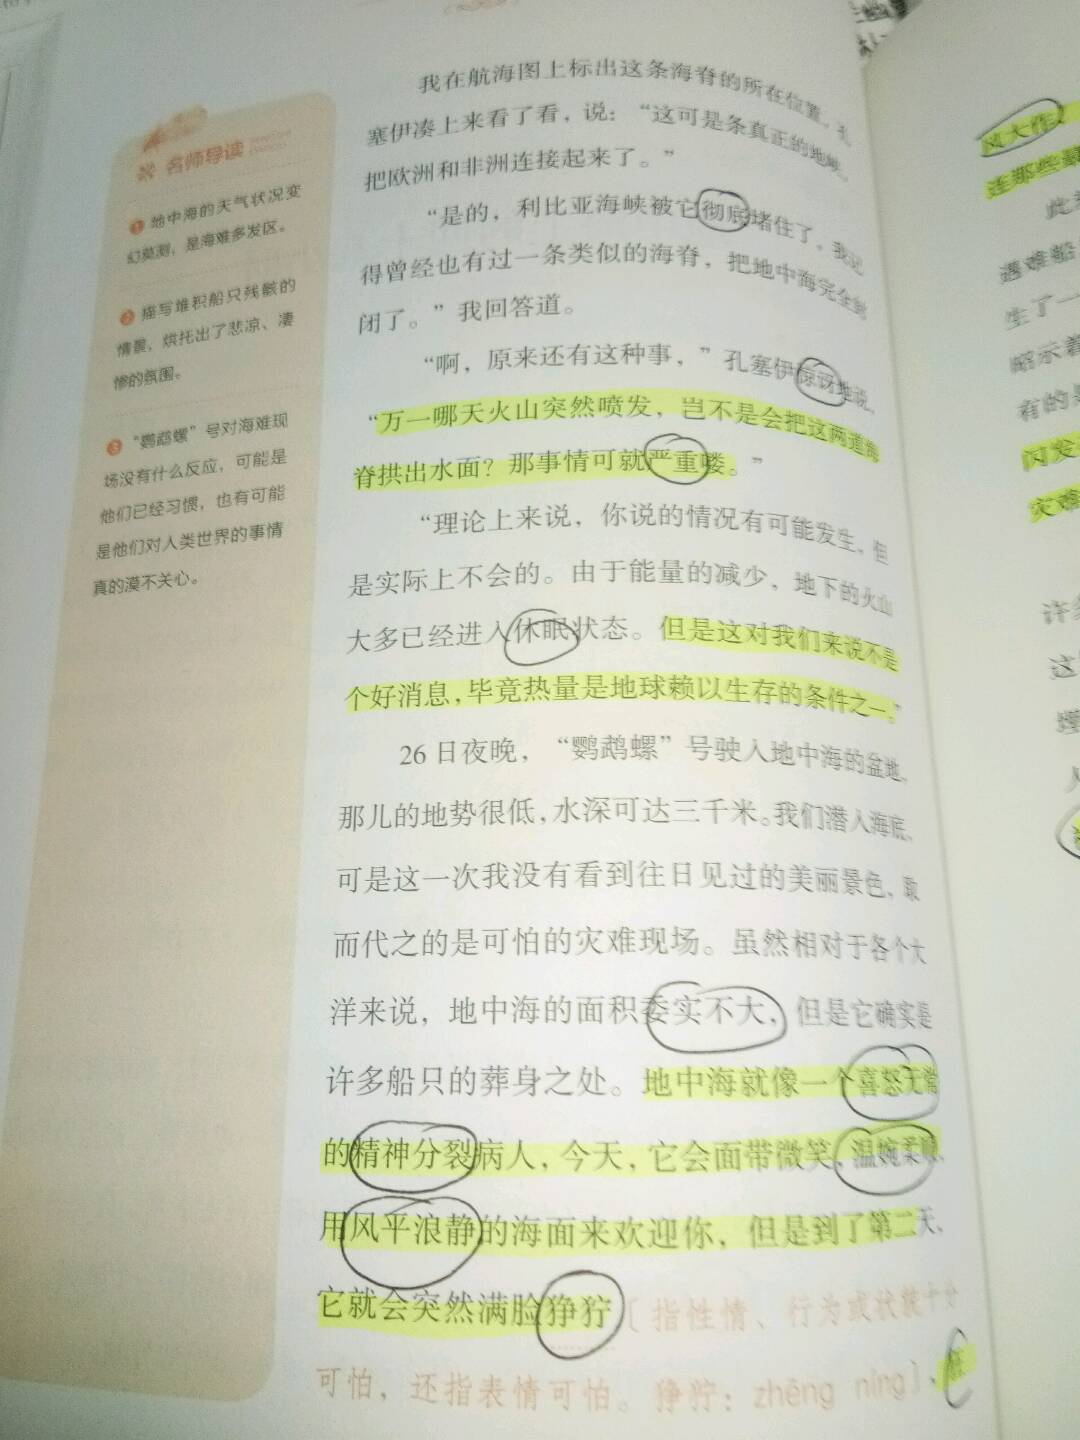 名师导读
❶ 地中海的天气状况变
幻莫测，是海难多发区。
❷ 描写堆积船只残骸的
情景，烘托出了悲凉、凄
惨的氛围。
❸ “鹦鹉螺”号对海难现
场没有什么反应，可能是
他们已经习惯，也有可能
是他们对人类世界的事情
真的漠不关心。
我在航海图上标出这条海脊的所在位置，孔
塞伊凑上来看了看，说：“这可是条真正的地峡，
把欧洲和非洲连接起来了。”
“是的，利比亚海峡被它彻底堵住了。我记
得曾经也有过一条类似的海脊，把地中海完全封
闭了。”我回答道。
“啊，原来还有这种事，”孔塞伊惊讶地说，
“万一哪天火山突然喷发，岂不是会把这两道海
脊拱出水面？那事情可就严重喽。”
“理论上来说，你说的情况有可能发生，但
是实际上不会的。由于能量的减少，地下的火山
大多已经进入休眠状态。但是这对我们来说不是
个好消息，毕竟热量是地球赖以生存的条件之一。”
26日夜晚，“鹦鹉螺”号驶入地中海的盆地，
那儿的地势很低，水深可达三千米。我们潜入海底，
可是这一次我没有看到往日见过的美丽景色，取
而代之的是可怕的灾难现场。虽然相对于各个大
洋来说，地中海的面积委实不大，但是它确实是
许多船只的葬身之处。地中海就像一个喜怒无常
的精神分裂病人，今天，它会面带微笑，温婉柔顺，
用风平浪静的海面来欢迎你，但是到了第二天，
它就会突然满脸狰狞〔指性情、行为或状貌十分
可怕，还指表情可怕。狰狞：zhēng níng〕，
风大作，
连那些
此
遇难船
生了一
昭示着
有的是
闪发
灾难
许
这
埋
人